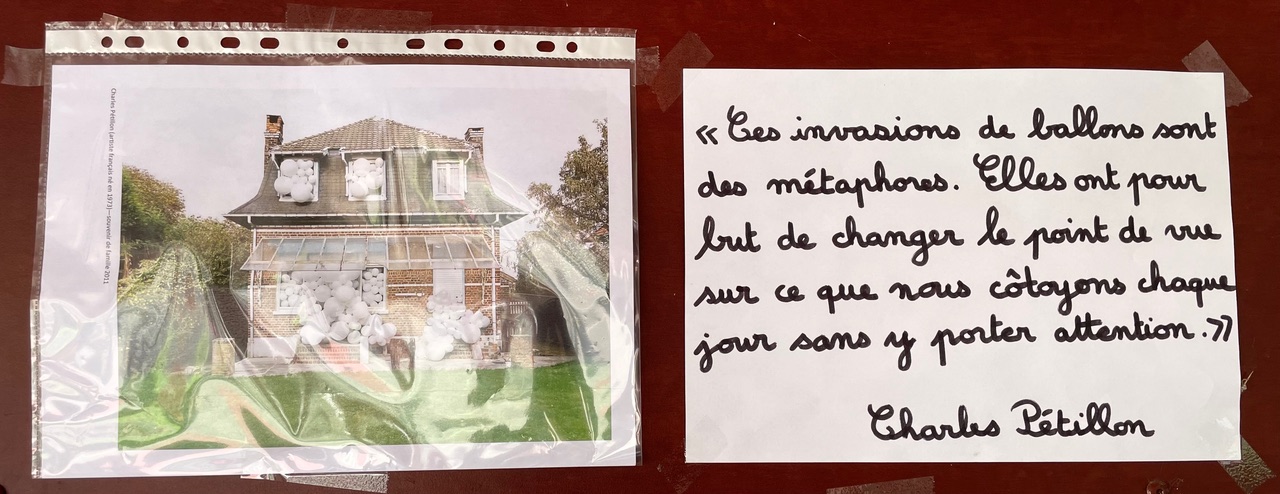 Charles Pétillon (artiste français né en 1973)—souvenir de famille 2011
« Ces invasions de ballons sont
des métaphores. Elles ont pour
but de changer le point de vue
sur ce que nous côtoyons chaque
jour sans y porter attention. »
Charles Pétillon